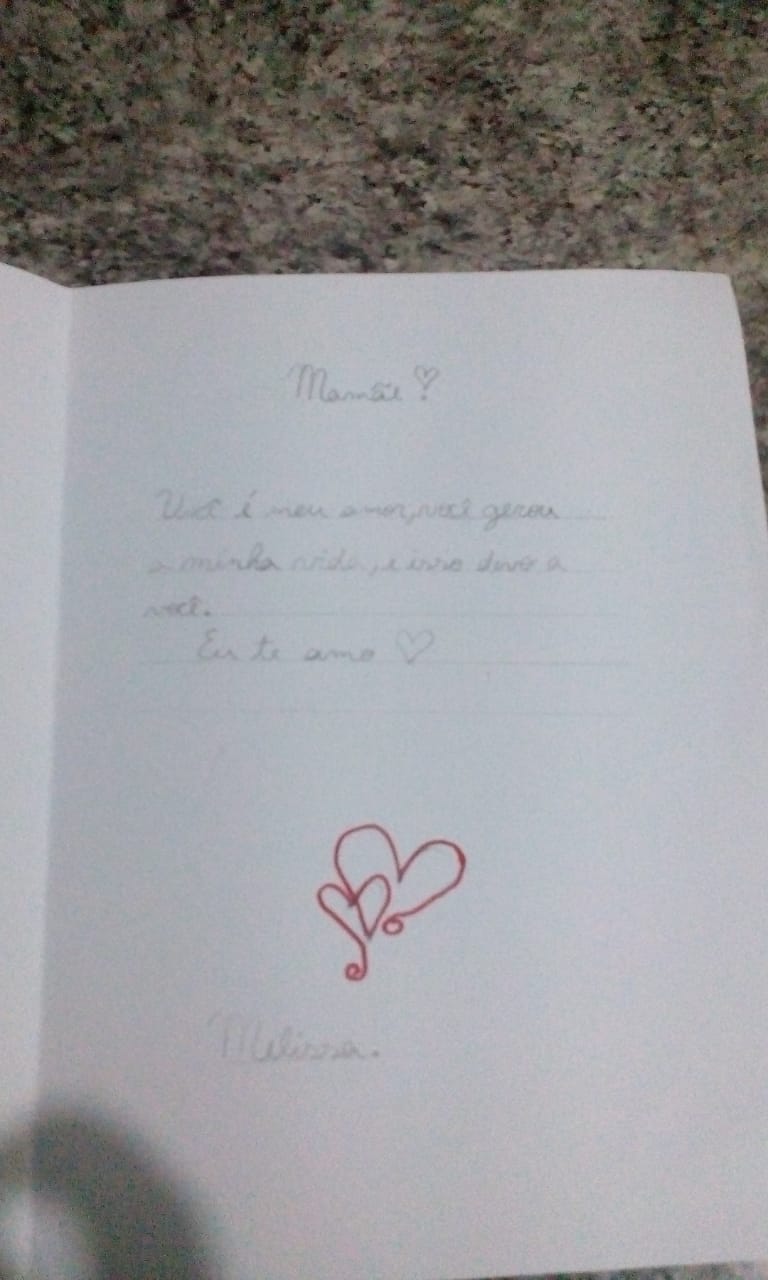 Mamãe!
Você é meu amor, você gerou
a minha vida, e isso devo a
você.
Eu te amo ♡
Melissa.